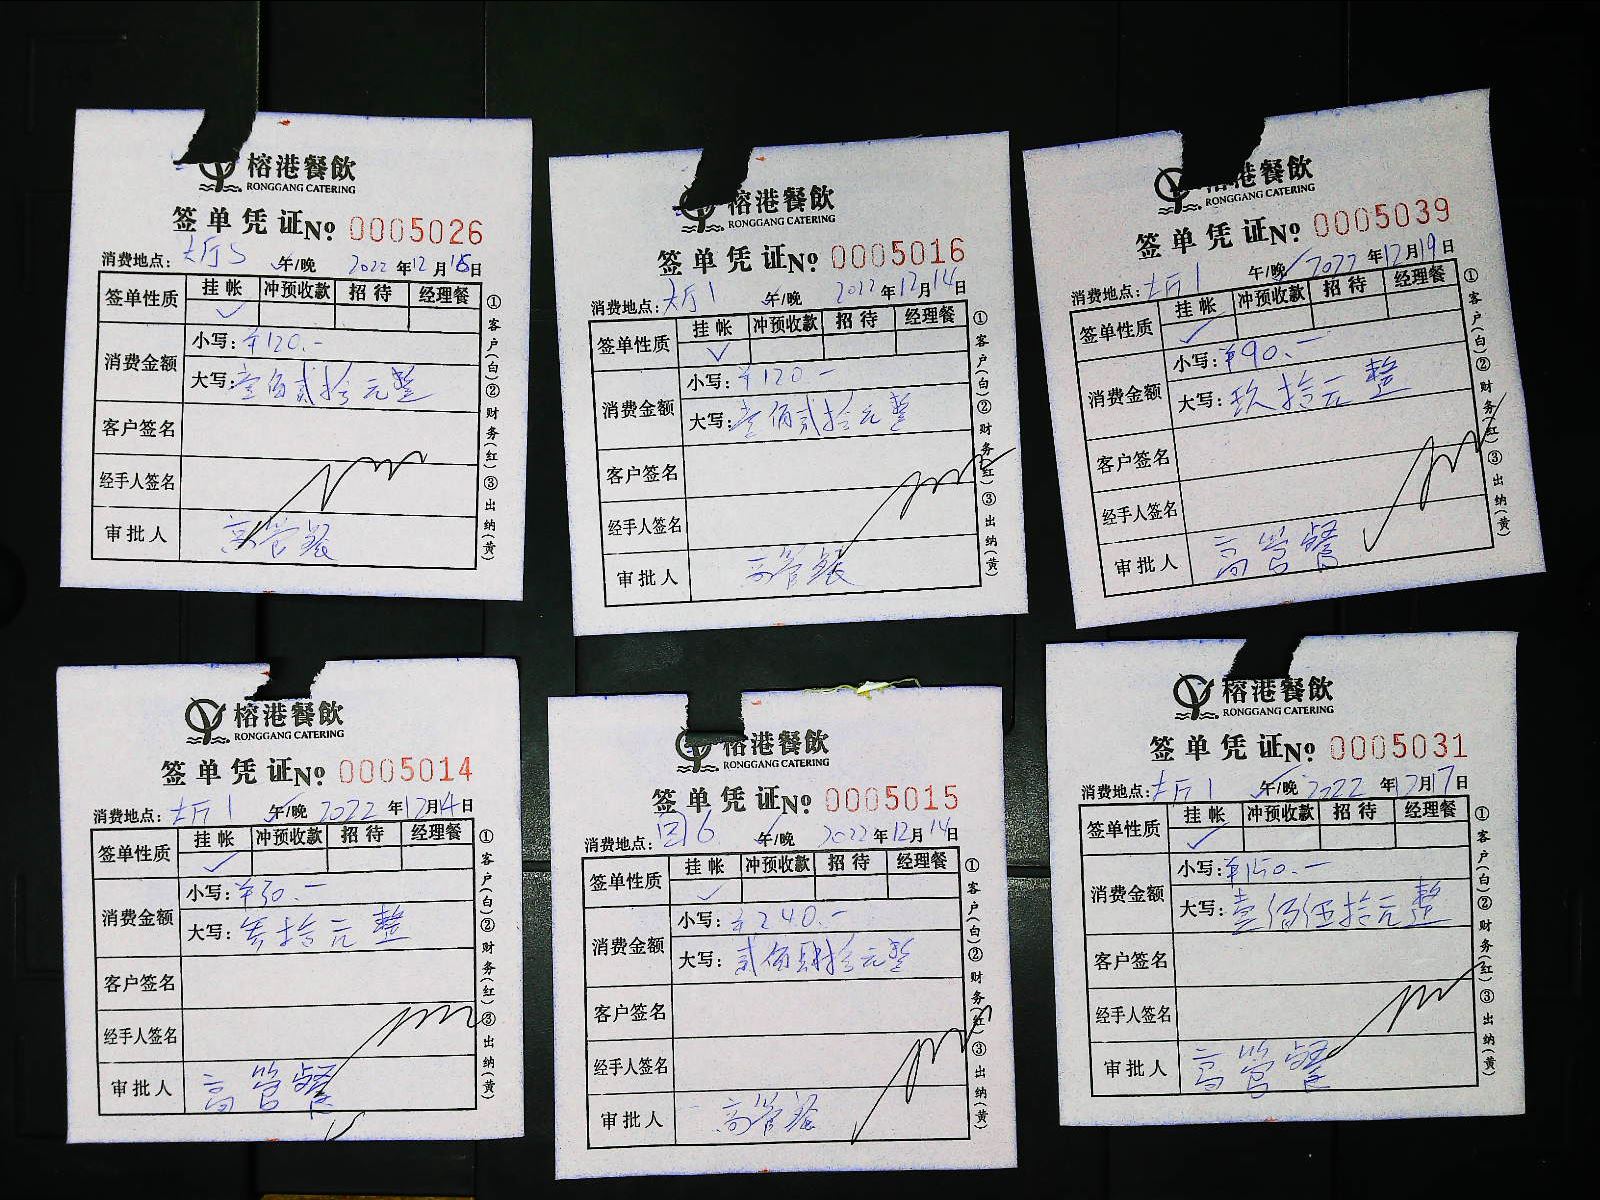 榕港餐飲
RONGGANG CATERING
签单凭证№ 0005026
消费地点：大厅5 午/晚 2022年12月16日
签单性质 挂帐 冲预收款 招待 经理餐
✓
消费金额 小写：¥120.-
大写：壹佰贰拾元整
客户签名
经手人签名
审批人 高管餐
①客户(白)②财务(红)③出纳(黄)
榕港餐飲
RONGGANG CATERING
签单凭证№ 0005016
消费地点：大厅1 午/晚 2022年12月14日
签单性质 挂帐 冲预收款 招待 经理餐
✓
消费金额 小写：¥120.-
大写：壹佰贰拾元整
客户签名
经手人签名
审批人 高管餐
①客户(白)②财务(红)③出纳(黄)
榕港餐飲
RONGGANG CATERING
签单凭证№ 0005039
消费地点：大厅1 午/晚 2022年12月19日
签单性质 挂帐 冲预收款 招待 经理餐
✓
消费金额 小写：¥90.-
大写：玖拾元整
客户签名
经手人签名
审批人 高管餐
①客户(白)②财务(红)③出纳(黄)
榕港餐飲
RONGGANG CATERING
签单凭证№ 0005014
消费地点：大厅1 午/晚 2022年12月14日
签单性质 挂帐 冲预收款 招待 经理餐
✓
消费金额 小写：¥30.-
大写：叁拾元整
客户签名
经手人签名
审批人 高管餐
①客户(白)②财务(红)③出纳(黄)
榕港餐飲
RONGGANG CATERING
签单凭证№ 0005015
消费地点：6 午/晚 2022年12月14日
签单性质 挂帐 冲预收款 招待 经理餐
✓
消费金额 小写：¥240.-
大写：贰佰肆拾元整
客户签名
经手人签名
审批人 高管餐
①客户(白)②财务(红)③出纳(黄)
榕港餐飲
RONGGANG CATERING
签单凭证№ 0005031
消费地点：大厅1 午/晚 2022年12月17日
签单性质 挂帐 冲预收款 招待 经理餐
✓
消费金额 小写：¥150.-
大写：壹佰伍拾元整
客户签名
经手人签名
审批人 高管餐
①客户(白)②财务(红)③出纳(黄)